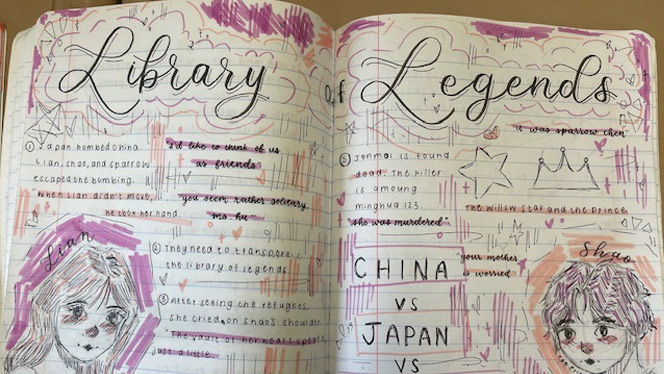 Library Of Legends
① Japan bombed china.
Lian, shao, and sparrow
escaped the bombing.
When Lian didn't move,
he took her hand.
"I'd like to think of us
as friends"
"you seem rather solitary,
ms. hu"
Lian
② They need to transport
the library of legends
③ After seeing the refugees,
she cried on shao's shoulder.
"The vault of her heart
just a little.
"it was sparrow chen"
Jenmai is found
dead. The killer
is amoung
minghua 123.
"she was murdered"
The willow star and the prince
CHINA
VS
JAPAN
VS
"your mother
is worried"
Shao